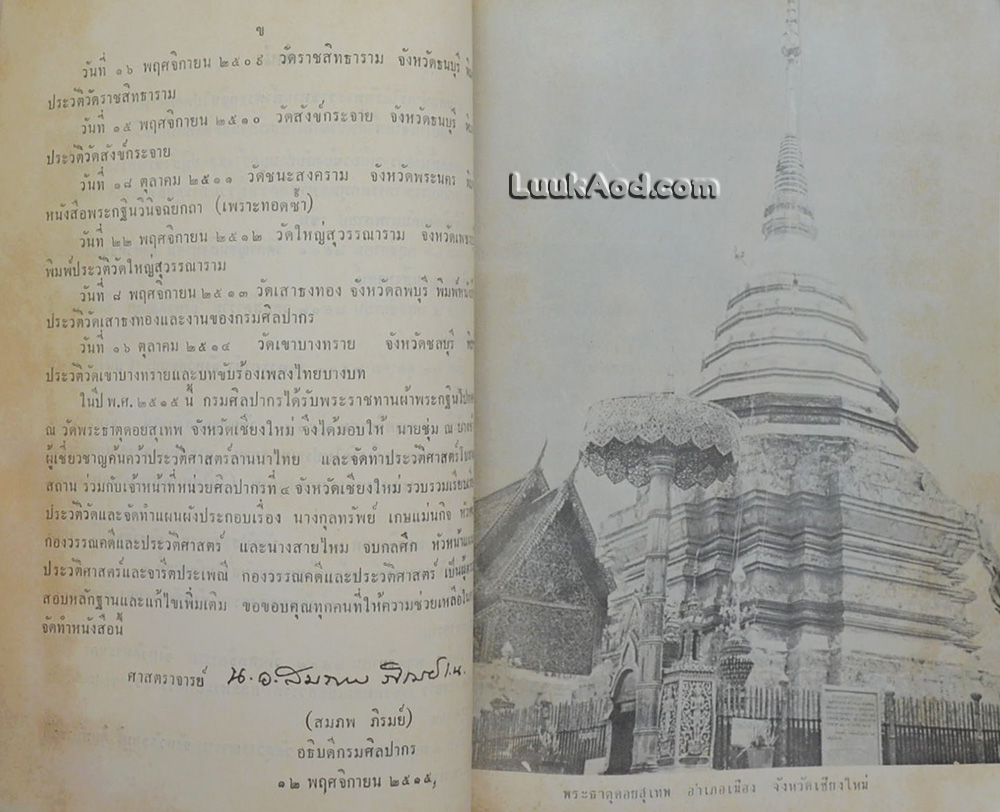 ข
วันที่ ๑๖ พฤศจิกายน ๒๕๐๙ วัดราชสิทธาราม จังหวัดธนบุรี
ประวัติวัดราชสิทธาราม
วันที่ ๑๕ พฤศจิกายน ๒๕๑๐ วัดสังข์กระจาย จังหวัดธนบุรี
ประวัติวัดสังข์กระจาย
วันที่ ๑๘ ตุลาคม ๒๕๑๑ วัดชนะสงคราม จังหวัดพระนคร
หนังสือพระกฐินวินิจฉัยกถา (เพราะทอดซ้ำ)
วันที่ ๒๒ พฤศจิกายน ๒๕๑๒ วัดใหญ่สุวรรณาราม
พิมพ์ประวัติวัดใหญ่สุวรรณาราม
วันที่ ๘ พฤศจิกายน ๒๕๑๓ วัดเสาธงทอง จังหวัดลพบุรี
ประวัติวัดเสาธงทองและงานของกรมศิลปากร
วันที่ ๑๖ ตุลาคม ๒๕๑๔ วัดเขาบางทราย จังหวัดชลบุรี
ประวัติวัดเขาบางทรายและบทขับร้องเพลงไทยบางบท
ในปี พ.ศ. ๒๕๑๕ นี้ กรมศิลปากรได้รับพระราชทานผ้าพระกฐิน
ณ วัดพระธาตุดอยสุเทพ จังหวัดเชียงใหม่ จึงได้มอบให้ นายชุ่ม ณ
ผู้เชี่ยวชาญค้นคว้าประวัติศาสตร์ลานนาไทย และจัดทำประวัติศาสตร์
สถาน ร่วมกับเจ้าหน้าที่หน่วยศิลปากรที่ ๔ จังหวัดเชียงใหม่ รวบรวม
ประวัติวัดและจัดทำแผนผังประกอบเรื่อง นางกุลทรัพย์ เกษแม่นกิจ
กองวรรณคดีและประวัติศาสตร์ และนางสายไหม จบกลศึก
ประวัติศาสตร์และจารีตประเพณี กองวรรณคดีและประวัติศาสตร์
สอบหลักฐานและแก้ไขเพิ่มเติม ขอขอบคุณทุกคนที่ให้ความช่วยเหลือ
จัดทำหนังสือนี้
ศาสตราจารย์ น.อ. สมภพ ภิรมย์ ร.น.
(สมภพ ภิรมย์)
อธิบดีกรมศิลปากร
๑๒ พฤศจิกายน ๒๕๑๕
LuukAod.com
พระธาตุดอยสุเทพ อำเภอเมือง จังหวัดเชียงใหม่